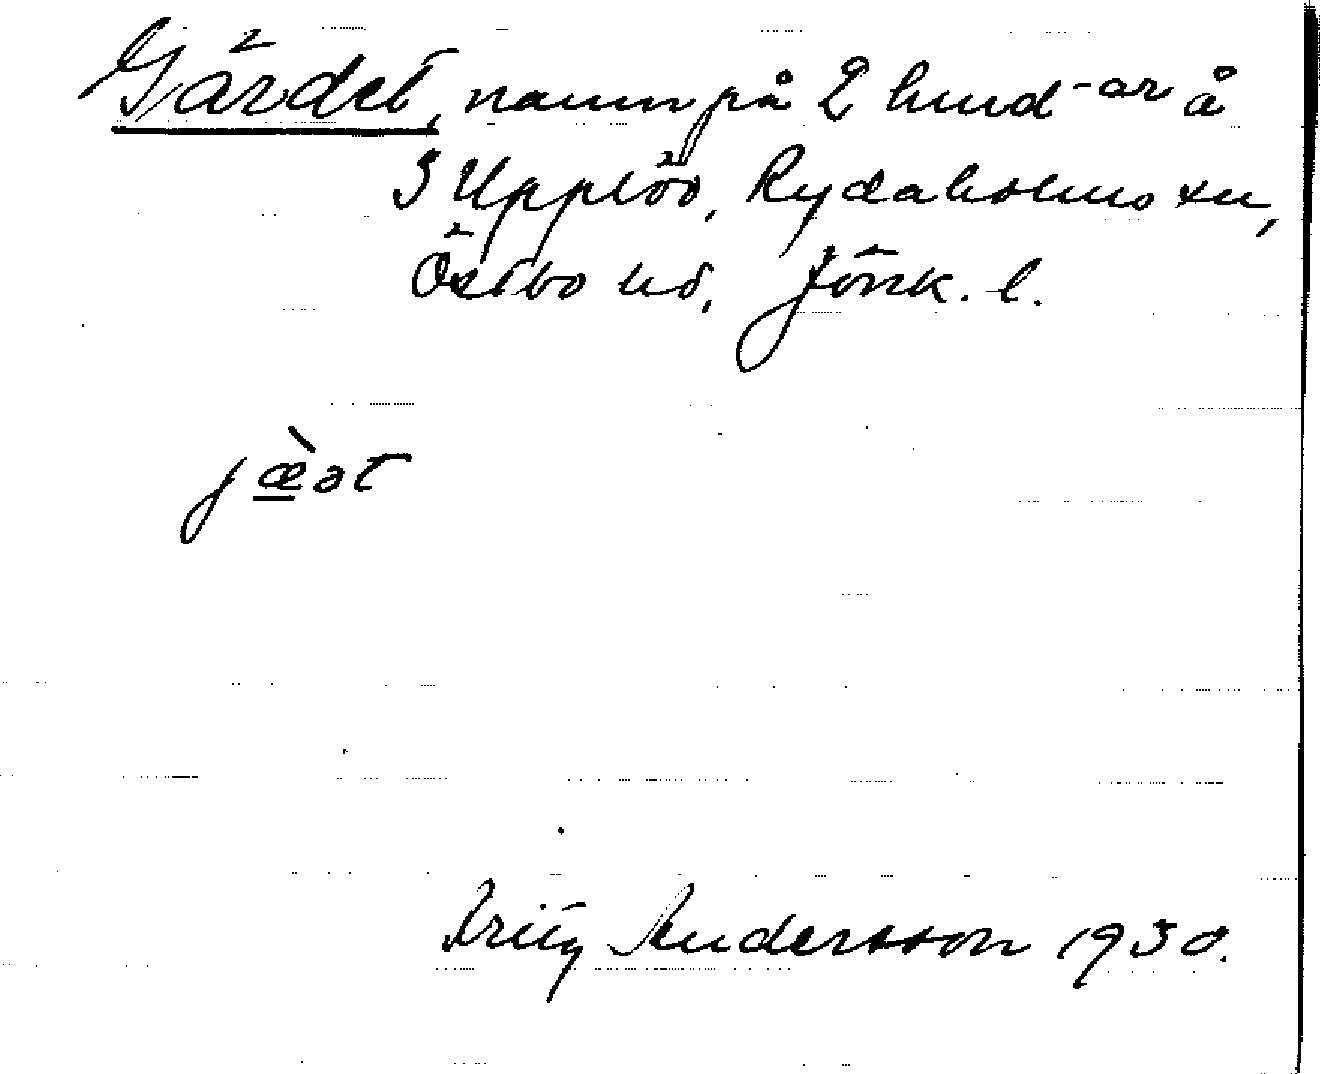 Gärdet, namn på 2 hmd-ar å
S Upplöv, Rydaholms sn,
Östbo hd, Jönk. l.
jæ̀ət
Fritz Andersson 1930.